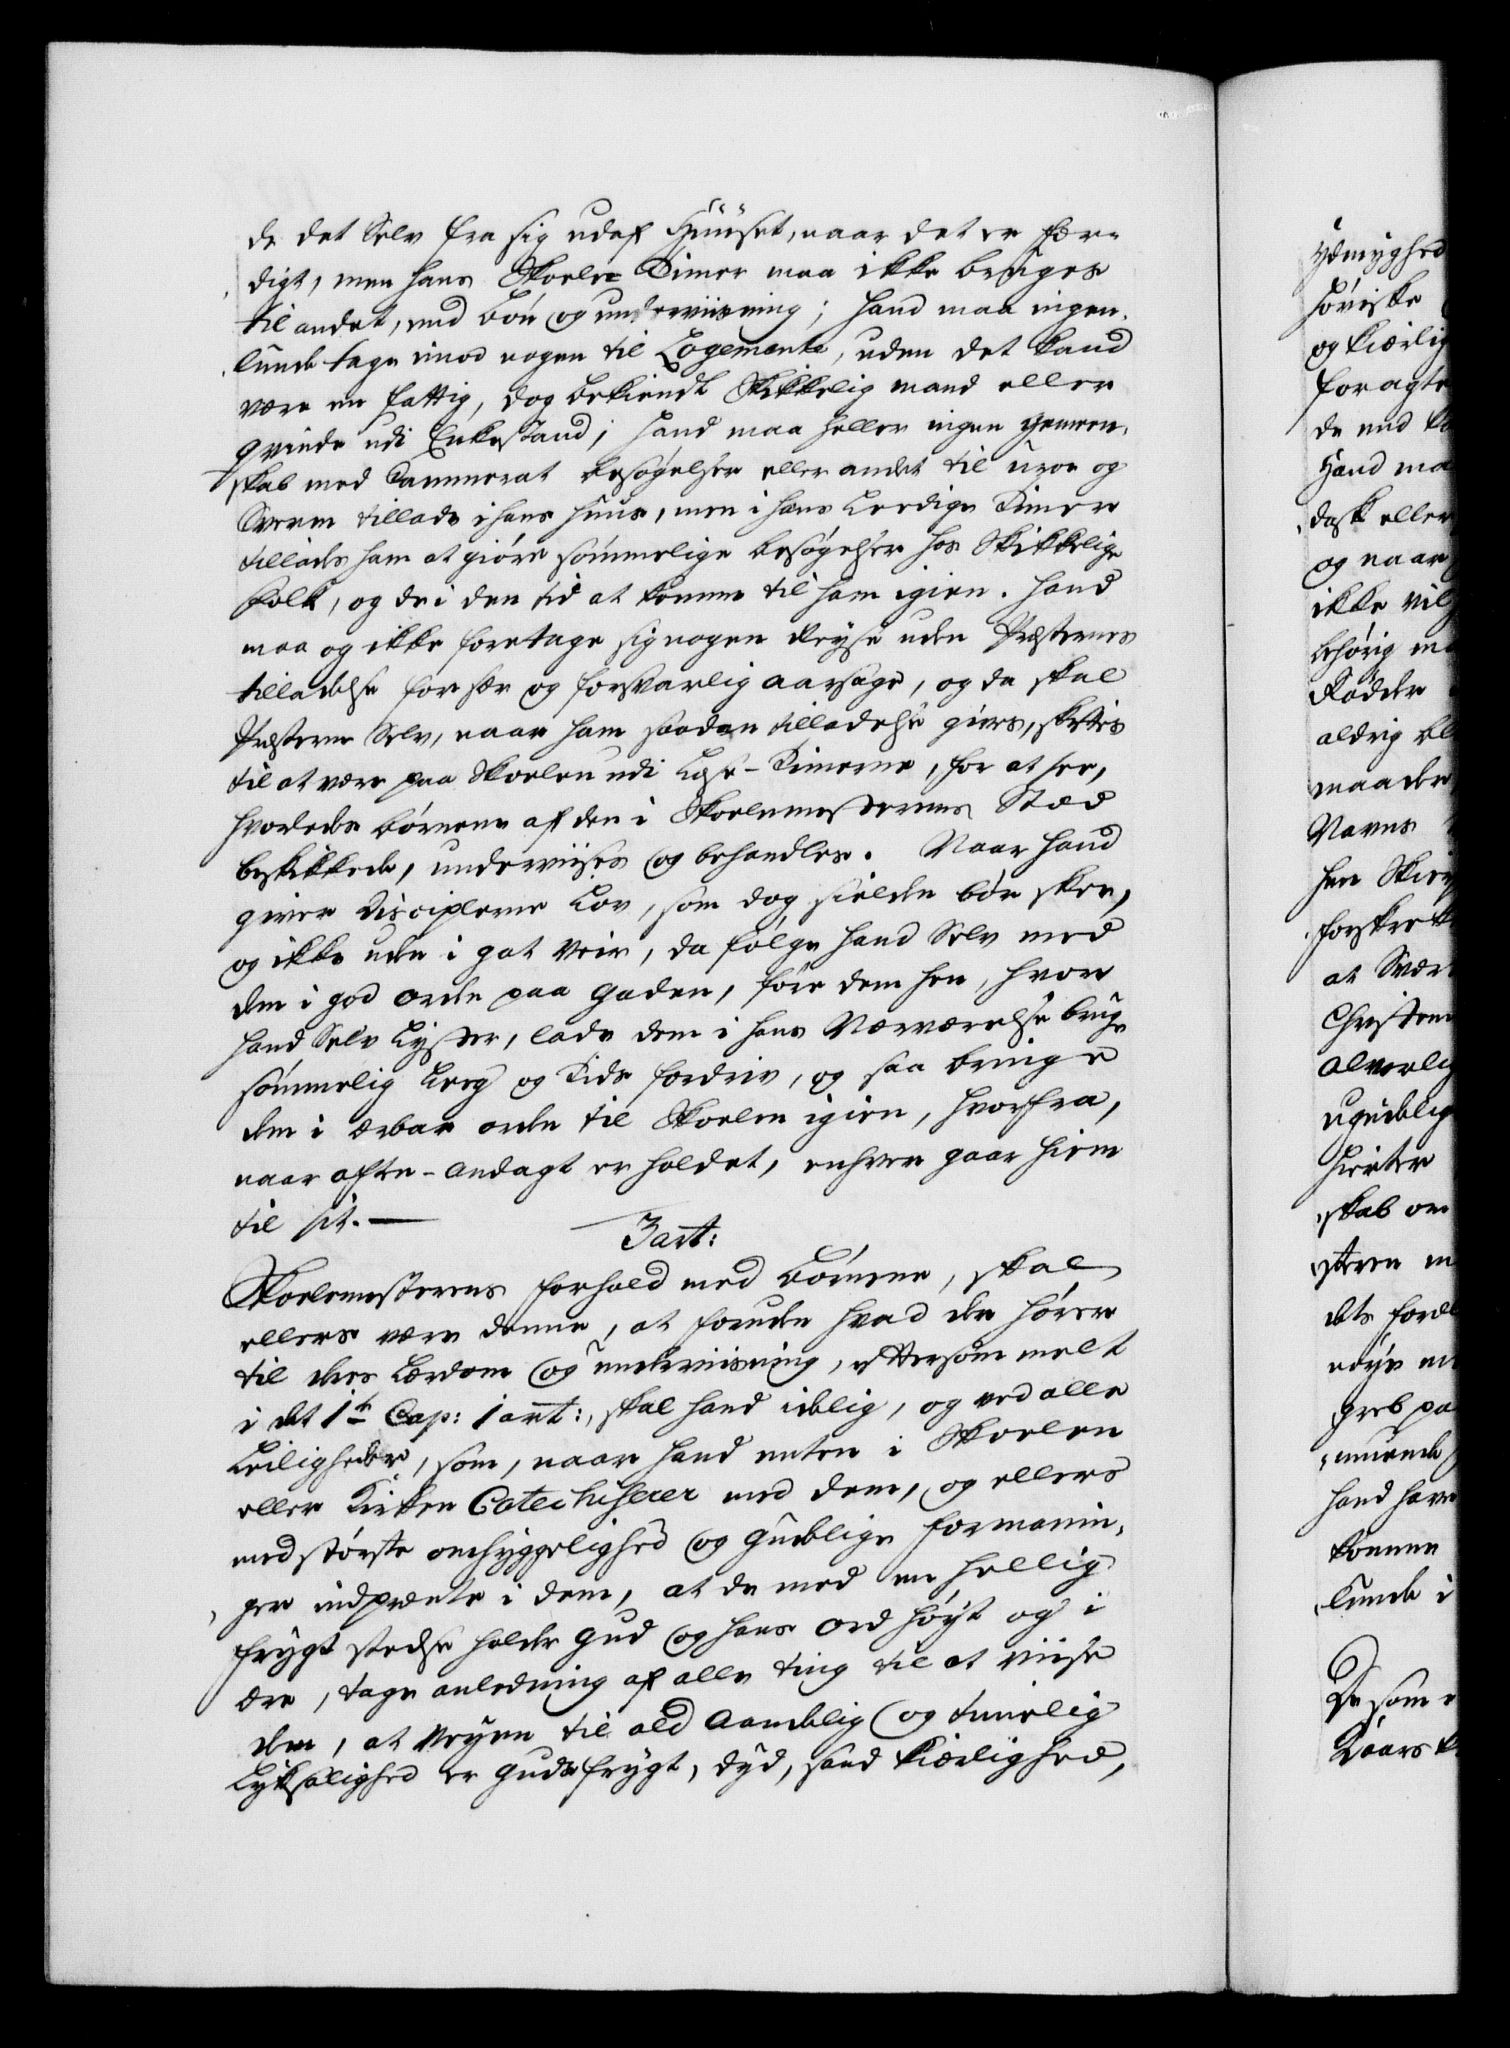 de det Selv fra sig udaf Huuset, naar det er fær-
digt, men hans Skoele Timer maa ikke bruges
til andet, end bøn og underviisning; hand maa ingen-
lunde tage imod nogen til Logemente, uden det kand
være en fattig, dog bekiendt Skikkelig mand eller
qvinde udi Enkestand; hand maa heller ingen gemeen-
skab med Cammerat besøgelser eller andet til uroe og
Sverm tillade i hans huus, men i hans Leedige Timer
tillades ham at giøre sømmelige besøgelser hos Skikkelige
folk, og de i den tid at komme til ham igien. hand
maa og ikke foretage sig nogen Reyse uden Præsternes
tilladelse for sær og forsvarlig aarsage, og da skal
Præsterne Selv, naar ham saadan tilladelse gives, skiftes
til at være paa Skoelen udi Læse-Timerne, for at see,
hvorledes børnene af den i Skoelemesterens Stæd
beskikkede, underviises og behandles. Naar hand
giver Disciplerne Lov, som dog sielden bør skee,
og ikke uden i got Veir, da følge hand Selv med
dem i god orden paa gaden, føre dem hen, hvor
hand Selv Lyster, lade dem i hans Nærværelse bruge
sømmelig Leeg og Tids fordriv, og saa bringe
dem i ærbar orden til Skoelen igien, hvorfra,
naar aften-andagt er holdet, enhver gaar hiem
til sit.
3 art:
Skoelemesterens forhold med Børnene, skal
ellers være denne, at foruden hvad der hører
til deres Lærdom og underviisning, eftersom melt
i det 1te Cap: 1 art:, skal hand idelig, og ved alle
Leiligheder, som, naar hand enten i Skoelen
eller Kirken Catechiserer med dem, og ellers
med største omhyggelighed og gudelige formanin-
ger indprænte i dem, at de med en hellig
frygt stedse holder gud og hans ord høyt og i
ære, tage anledning af alle ting til at viise
dem, at Veyen til ald aandelig og timelig
Lyksalighed er gudsfrygt, dyd, sand kierlighed,
ydmyghed
høviske
og kierlig
foragte
de end
Hand ma
dask eller
og naar
ikke vil
behørig
Fødder
aldrig bl
maader
Navns
hen
forskrek
at Svær
Christen
alverlig
ugudelig
hierter
skab
steren
dets foræl
nøye
greb pa
muende
hand have
komme
lunde i
De som
Kaars